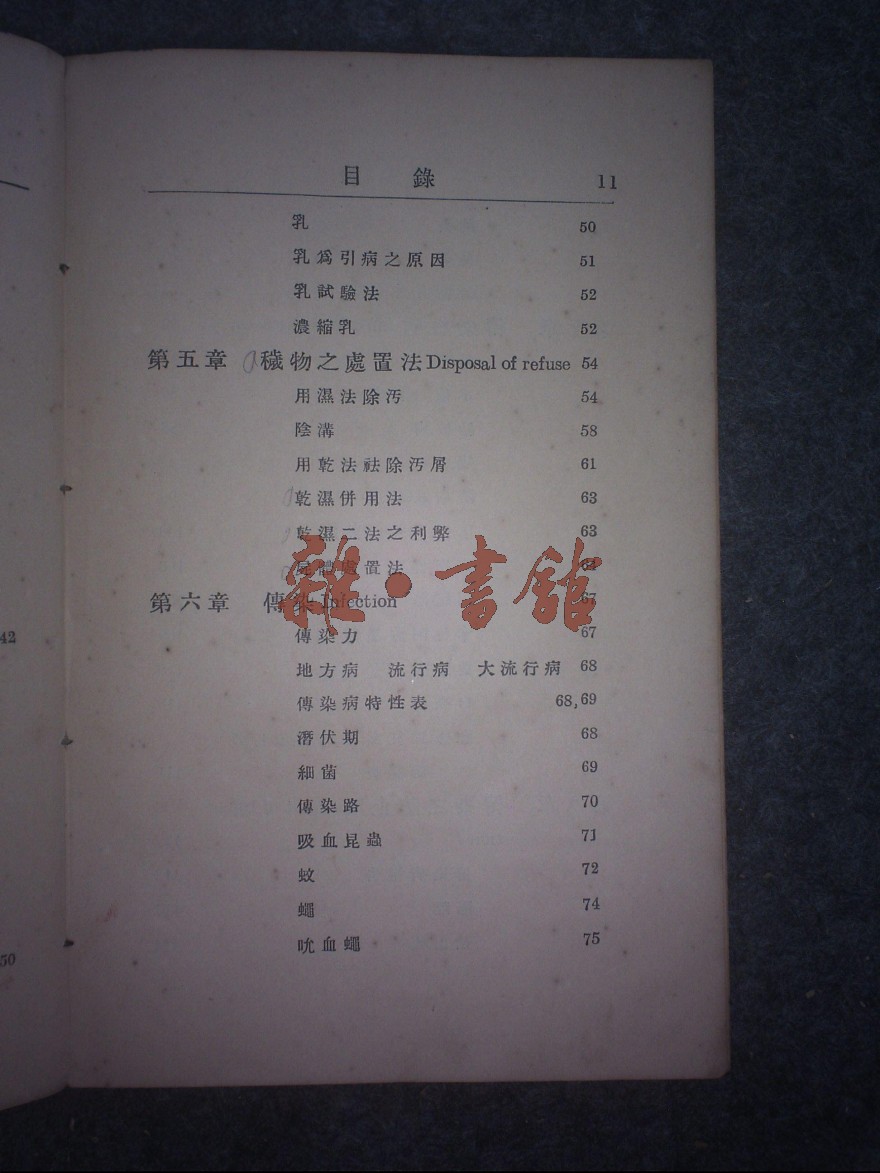 目錄 11
乳 50
乳爲引病之原因 51
乳試驗法 52
濃縮乳 52
第五章 穢物之處置法 Disposal of refuse 54
用濕法除汚 54
陰溝 58
用乾法祛除汚屑 61
乾濕併用法 63
乾濕二法之利弊 63
屍體處置法 64
第六章 傳染 Infection 67
傳染力 67
地方病 流行病 大流行病 68
傳染病特性表 68,69
潛伏期 68
細菌 69
傳染路 70
吸血昆蟲 71
蚊 72
蠅 74
吮血蠅 75
42
50
雜·書館